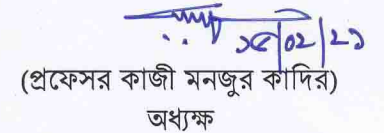 ১৫/০২/২১
(প্রফেসর কাজী মনজুর কাদির)
অধ্যক্ষ